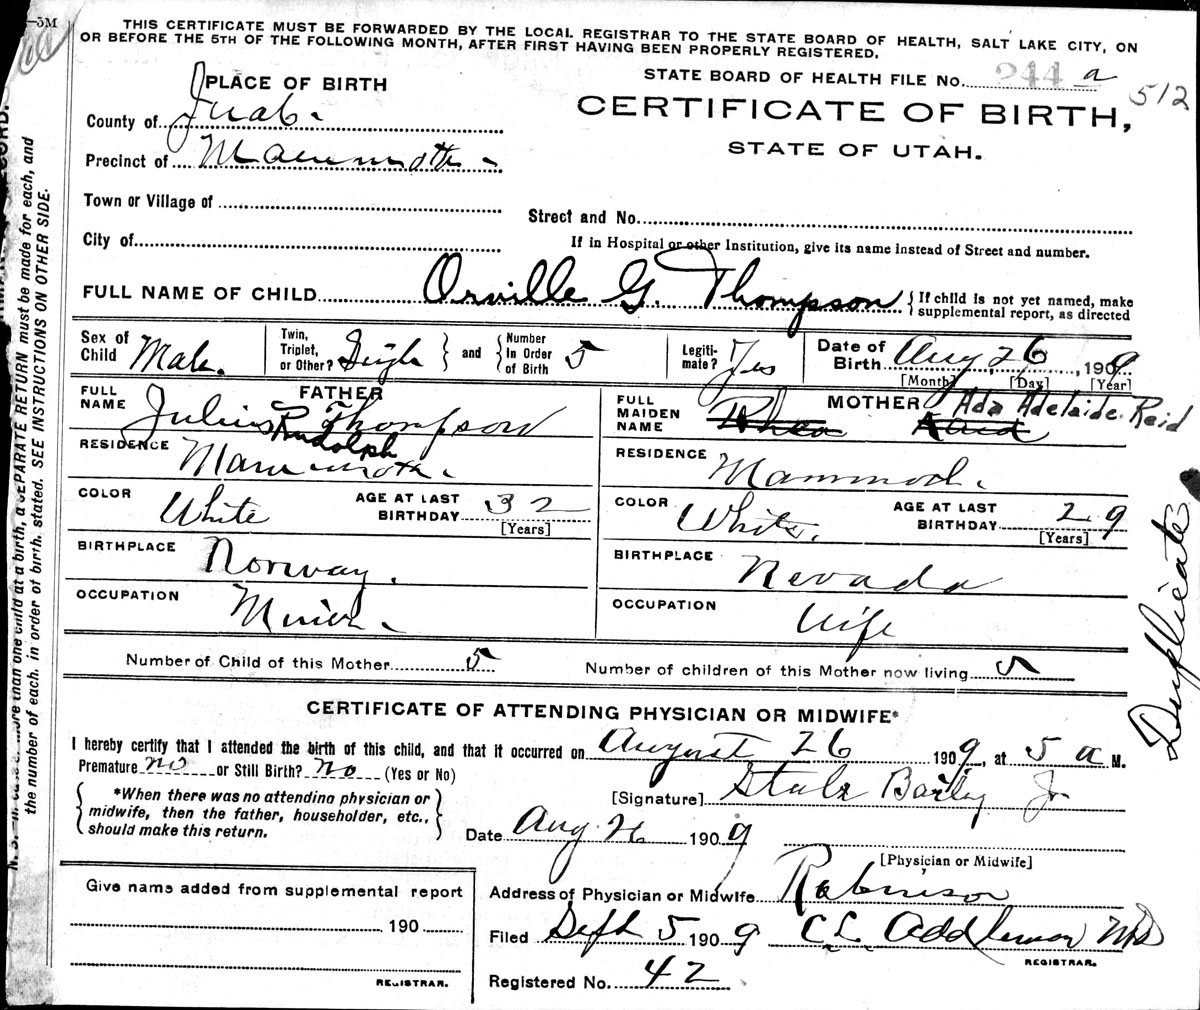 —5M
THIS CERTIFICATE MUST BE FORWARDED BY THE LOCAL REGISTRAR TO THE STATE BOARD OF HEALTH, SALT LAKE CITY, ON
OR BEFORE THE 5TH OF THE FOLLOWING MONTH, AFTER FIRST HAVING BEEN PROPERLY REGISTERED.
PLACE OF BIRTH
STATE BOARD OF HEALTH FILE No. 244 a
512
County of Juab.
CERTIFICATE OF BIRTH,
Precinct of Mammoth
STATE OF UTAH.
Town or Village of
Street and No.
City of
If in Hospital or other Institution, give its name instead of Street and number.
FULL NAME OF CHILD Orville G. Thompson { If child is not yet named, make
supplemental report, as directed
Sex of Child Male. Twin, Triplet, or Other? Single } and { Number In Order of Birth 5 Legiti-mate? Yes Date of Birth Aug, 26, 1909
[Month] [Day] [Year]
FATHER
FULL NAME Julius Thompson
Rudolph
RESIDENCE Mammoth.
COLOR White AGE AT LAST BIRTHDAY 32
[Years]
BIRTHPLACE Norway.
OCCUPATION Miner.
MOTHER
FULL MAIDEN NAME Rhea Ada Adelaide Reid
RESIDENCE Mammoth.
COLOR White. AGE AT LAST BIRTHDAY 29
[Years]
BIRTHPLACE Nevada
OCCUPATION Wife
Number of Child of this Mother 5 Number of children of this Mother now living 5
CERTIFICATE OF ATTENDING PHYSICIAN OR MIDWIFE*
I hereby certify that I attended the birth of this child, and that it occurred on August 26 1909, at 5 a M.
Premature no or Still Birth? no (Yes or No)
{ *When there was no attending physician or
midwife, then the father, householder, etc.,
should make this return. }
[Signature] Bailey Jr
Date Aug 26 1909
[Physician or Midwife]
Give name added from supplemental report
190
REGISTRAR.
Address of Physician or Midwife Robinson
Filed Sept 5 1909 C L Addleman MD
REGISTRAR.
Registered No. 42
Duplicate
N. B.—In case of more than one child at a birth, a SEPARATE RETURN must be made for each, and
the number of each, in order of birth, stated. SEE INSTRUCTIONS ON OTHER SIDE.